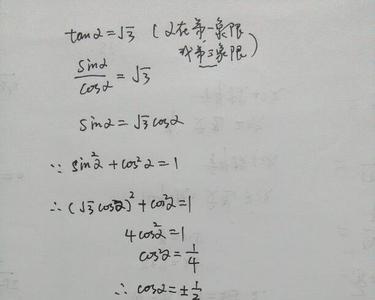 tanα=√3 (α在第一象限
或第三象限)
sinα/cosα=√3
sinα=√3cosα
∵ sin²α+cos²α=1
∴(√3cosα)²+cos²α=1
4cos²α=1
cos²α=1/4
∴ cosα=±1/2